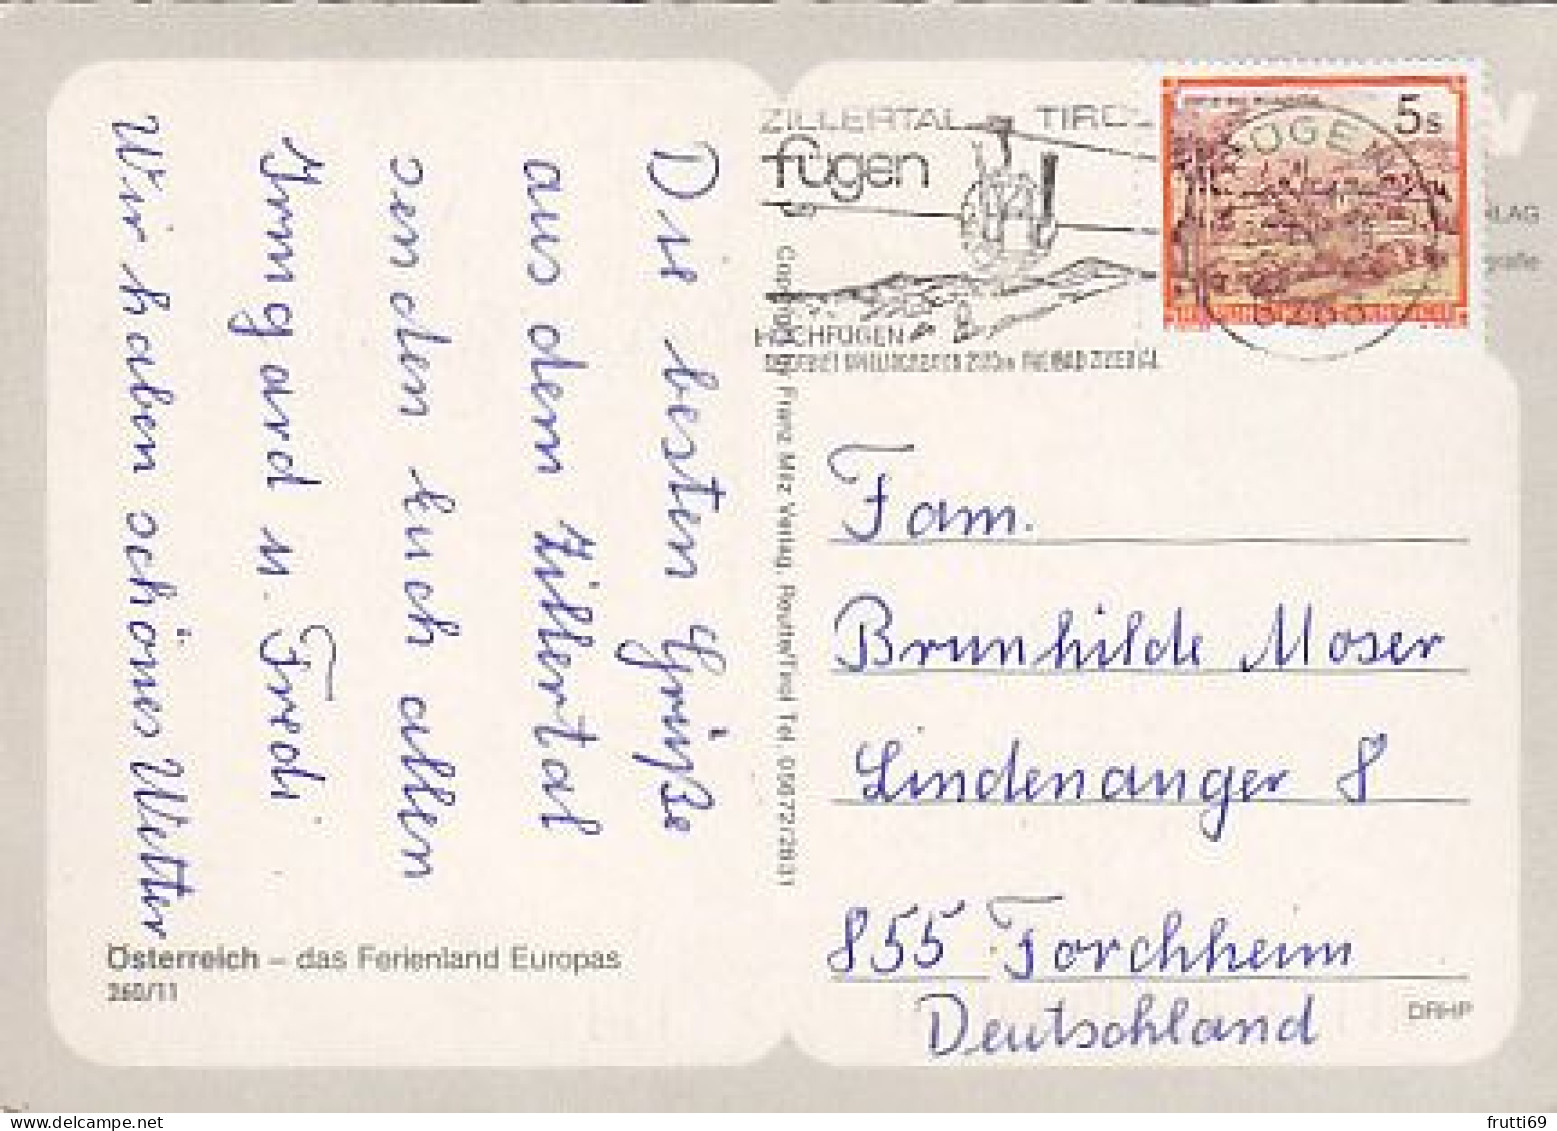 Die besten Grüße
aus dem Zillertal
senden Euch allen
Irmgard u. Fredi
Wir haben schönes Wetter
Österreich – das Ferienland Europas
260/11
Copyright by Franz Milz Verlag, Reutte/Tirol Tel. 05672/2831
ZILLERTAL TIROL
fügen
HOCHFÜGEN
5s
Fam.
Brunhilde Moser
Lindenanger 8
855 Forchheim
Deutschland
DRHP
frutti69